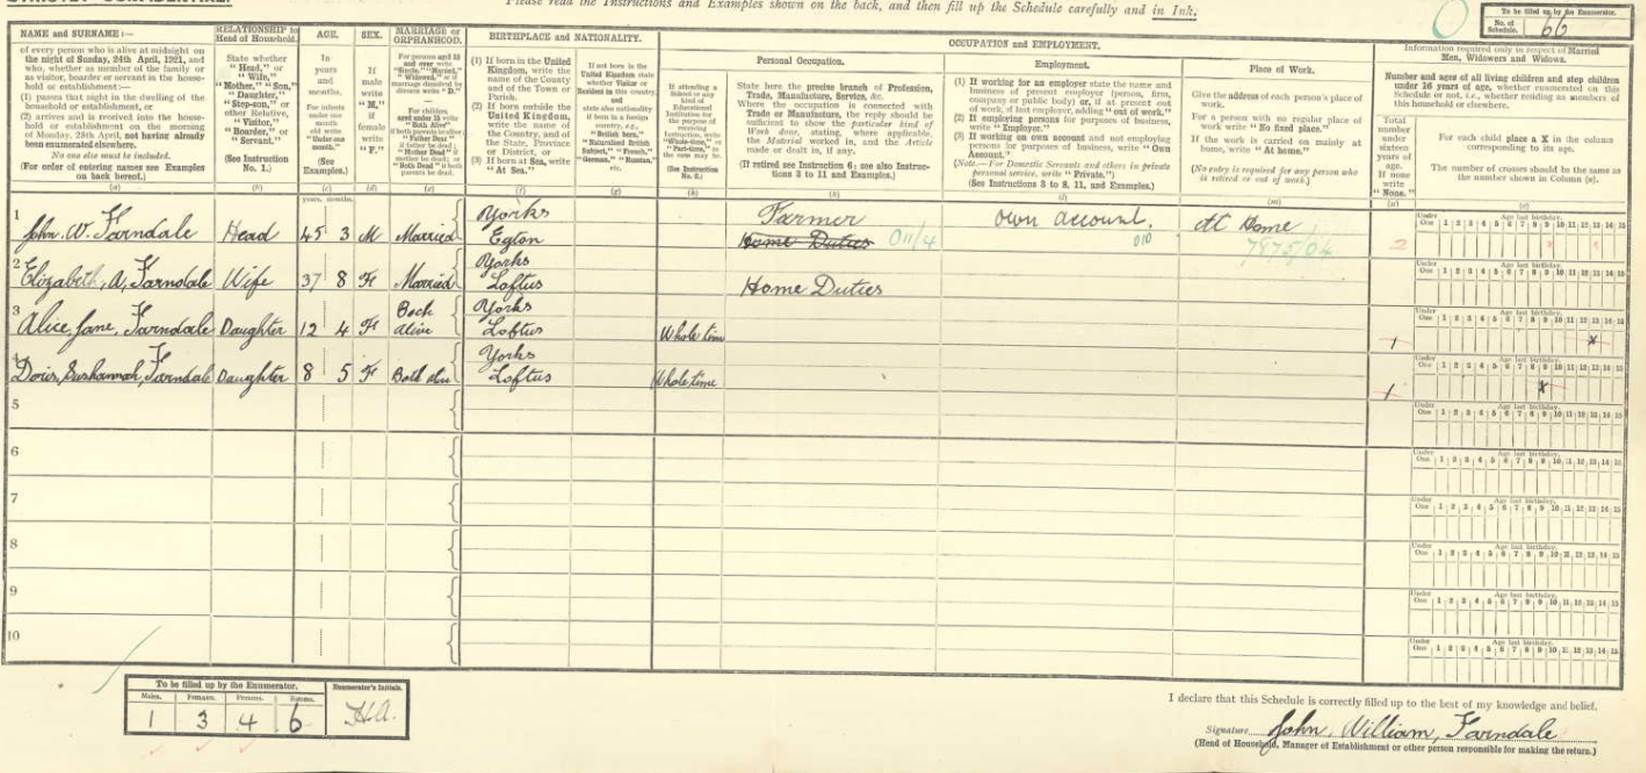 Please read the Instructions and Examples shown on the back, and then fill up the Schedule carefully and in Ink.
To be filled up by the Enumerator.
No. of Schedule. 66
NAME and SURNAME:—
of every person who is alive at midnight on
the night of Sunday, 24th April, 1921, and
who, whether as member of the family or
as visitor, boarder or servant in the house-
hold or establishment:—
(1) passes that night in the dwelling of the
household or establishment, or
(2) arrives and is received into the house-
hold or establishment on the morning
of Monday, 25th April, not having already
been enumerated elsewhere.
No one else must be included.
(For order of entering names see Examples
on back hereof.)
(a)
RELATIONSHIP to
Head of Household.
State whether
"Head," or
"Wife,"
"Mother," "Son,"
"Daughter,"
"Step-son," or
other Relative,
"Visitor,"
"Boarder," or
"Servant."
(See Instruction
No. 1.)
(b)
AGE.
In
years
and
months.
For infants
under one
month
old write
"Under one
month."
(See
Examples.)
(c)
SEX.
If
male
write
"M,"
if
female
write
"F."
(d)
MARRIAGE or
ORPHANHOOD.
(e)
BIRTHPLACE and NATIONALITY.
(1) If born in the United
Kingdom, write the
name of the County
and of the Town or
Parish.
(2) If born outside the
United Kingdom,
write the name of
the Country, and of
the State, Province
or District, or
(3) If born at Sea, write
"At Sea."
(f)
(g)
OCCUPATION and EMPLOYMENT.
Personal Occupation.
(h)
State here the precise branch of Profession,
Trade, Manufacture, Service, &c.
Where the occupation is connected with
Trade or Manufacture, the reply should be
sufficient to show the particular kind of
Work done, stating, where applicable,
the Material worked in, and the Article
made or dealt in, if any.
(If retired see Instruction 6; see also Instruc-
tions 3 to 11 and Examples.)
(k)
Employment.
(1) If working for an employer state the name and
business of present employer (person, firm,
company or public body) or, if at present out
of work, of last employer, adding "out of work."
(2) If employing persons for purposes of business,
write "Employer."
(3) If working on own account and not employing
persons for purposes of business, write "Own
Account."
(Note.—For Domestic Servants and others in private
personal service, write "Private.")
(See Instructions 3 to 8, 11, and Examples.)
(l)
Place of Work.
Give the address of each person's place of
work.
For a person with no regular place of
work write "No fixed place."
If the work is carried on mainly at
home, write "At home."
(No entry is required for any person who
is retired or out of work.)
(m)
Information required only in respect of Married
Men, Widowers and Widows.
Number and ages of all living children and step children
under 16 years of age, whether enumerated on this
Schedule or not, i.e., whether residing as members of
this household or elsewhere.
Total
number
under
sixteen
years of
age.
If none
write
"None."
(n)
For each child place a X in the column
corresponding to its age.
The number of crosses should be the same as
the number shown in Column (n).
(o)
years. months.
1 John. W. Farndale Head 45 3 M Married Yorks Egton Farmer Home Duties 011/4 own account. 010 At Home 7875/04 2
2 Elizabeth, A, Farndale Wife 37 8 F Married Yorks Loftus Home Duties
3 Alice, Jane, Farndale Daughter 12 4 F Both alive Yorks Loftus Whole time 1 X
4 Doris, Sushannah, Farndale Daughter 8 5 F Both alive Yorks Loftus Whole time 1 X
5
6
7
8
9
10
Under One 1 2 3 4 5 6 7 8 9 10 11 12 13 14 15
Age last birthday.
To be filled up by the Enumerator.
Males. Females. Persons. Rooms.
1 3 4 6
Enumerator's Initials.
H.A.
I declare that this Schedule is correctly filled up to the best of my knowledge and belief.
Signature John, William, Farndale
(Head of Household, Manager of Establishment or other person responsible for making the return.)